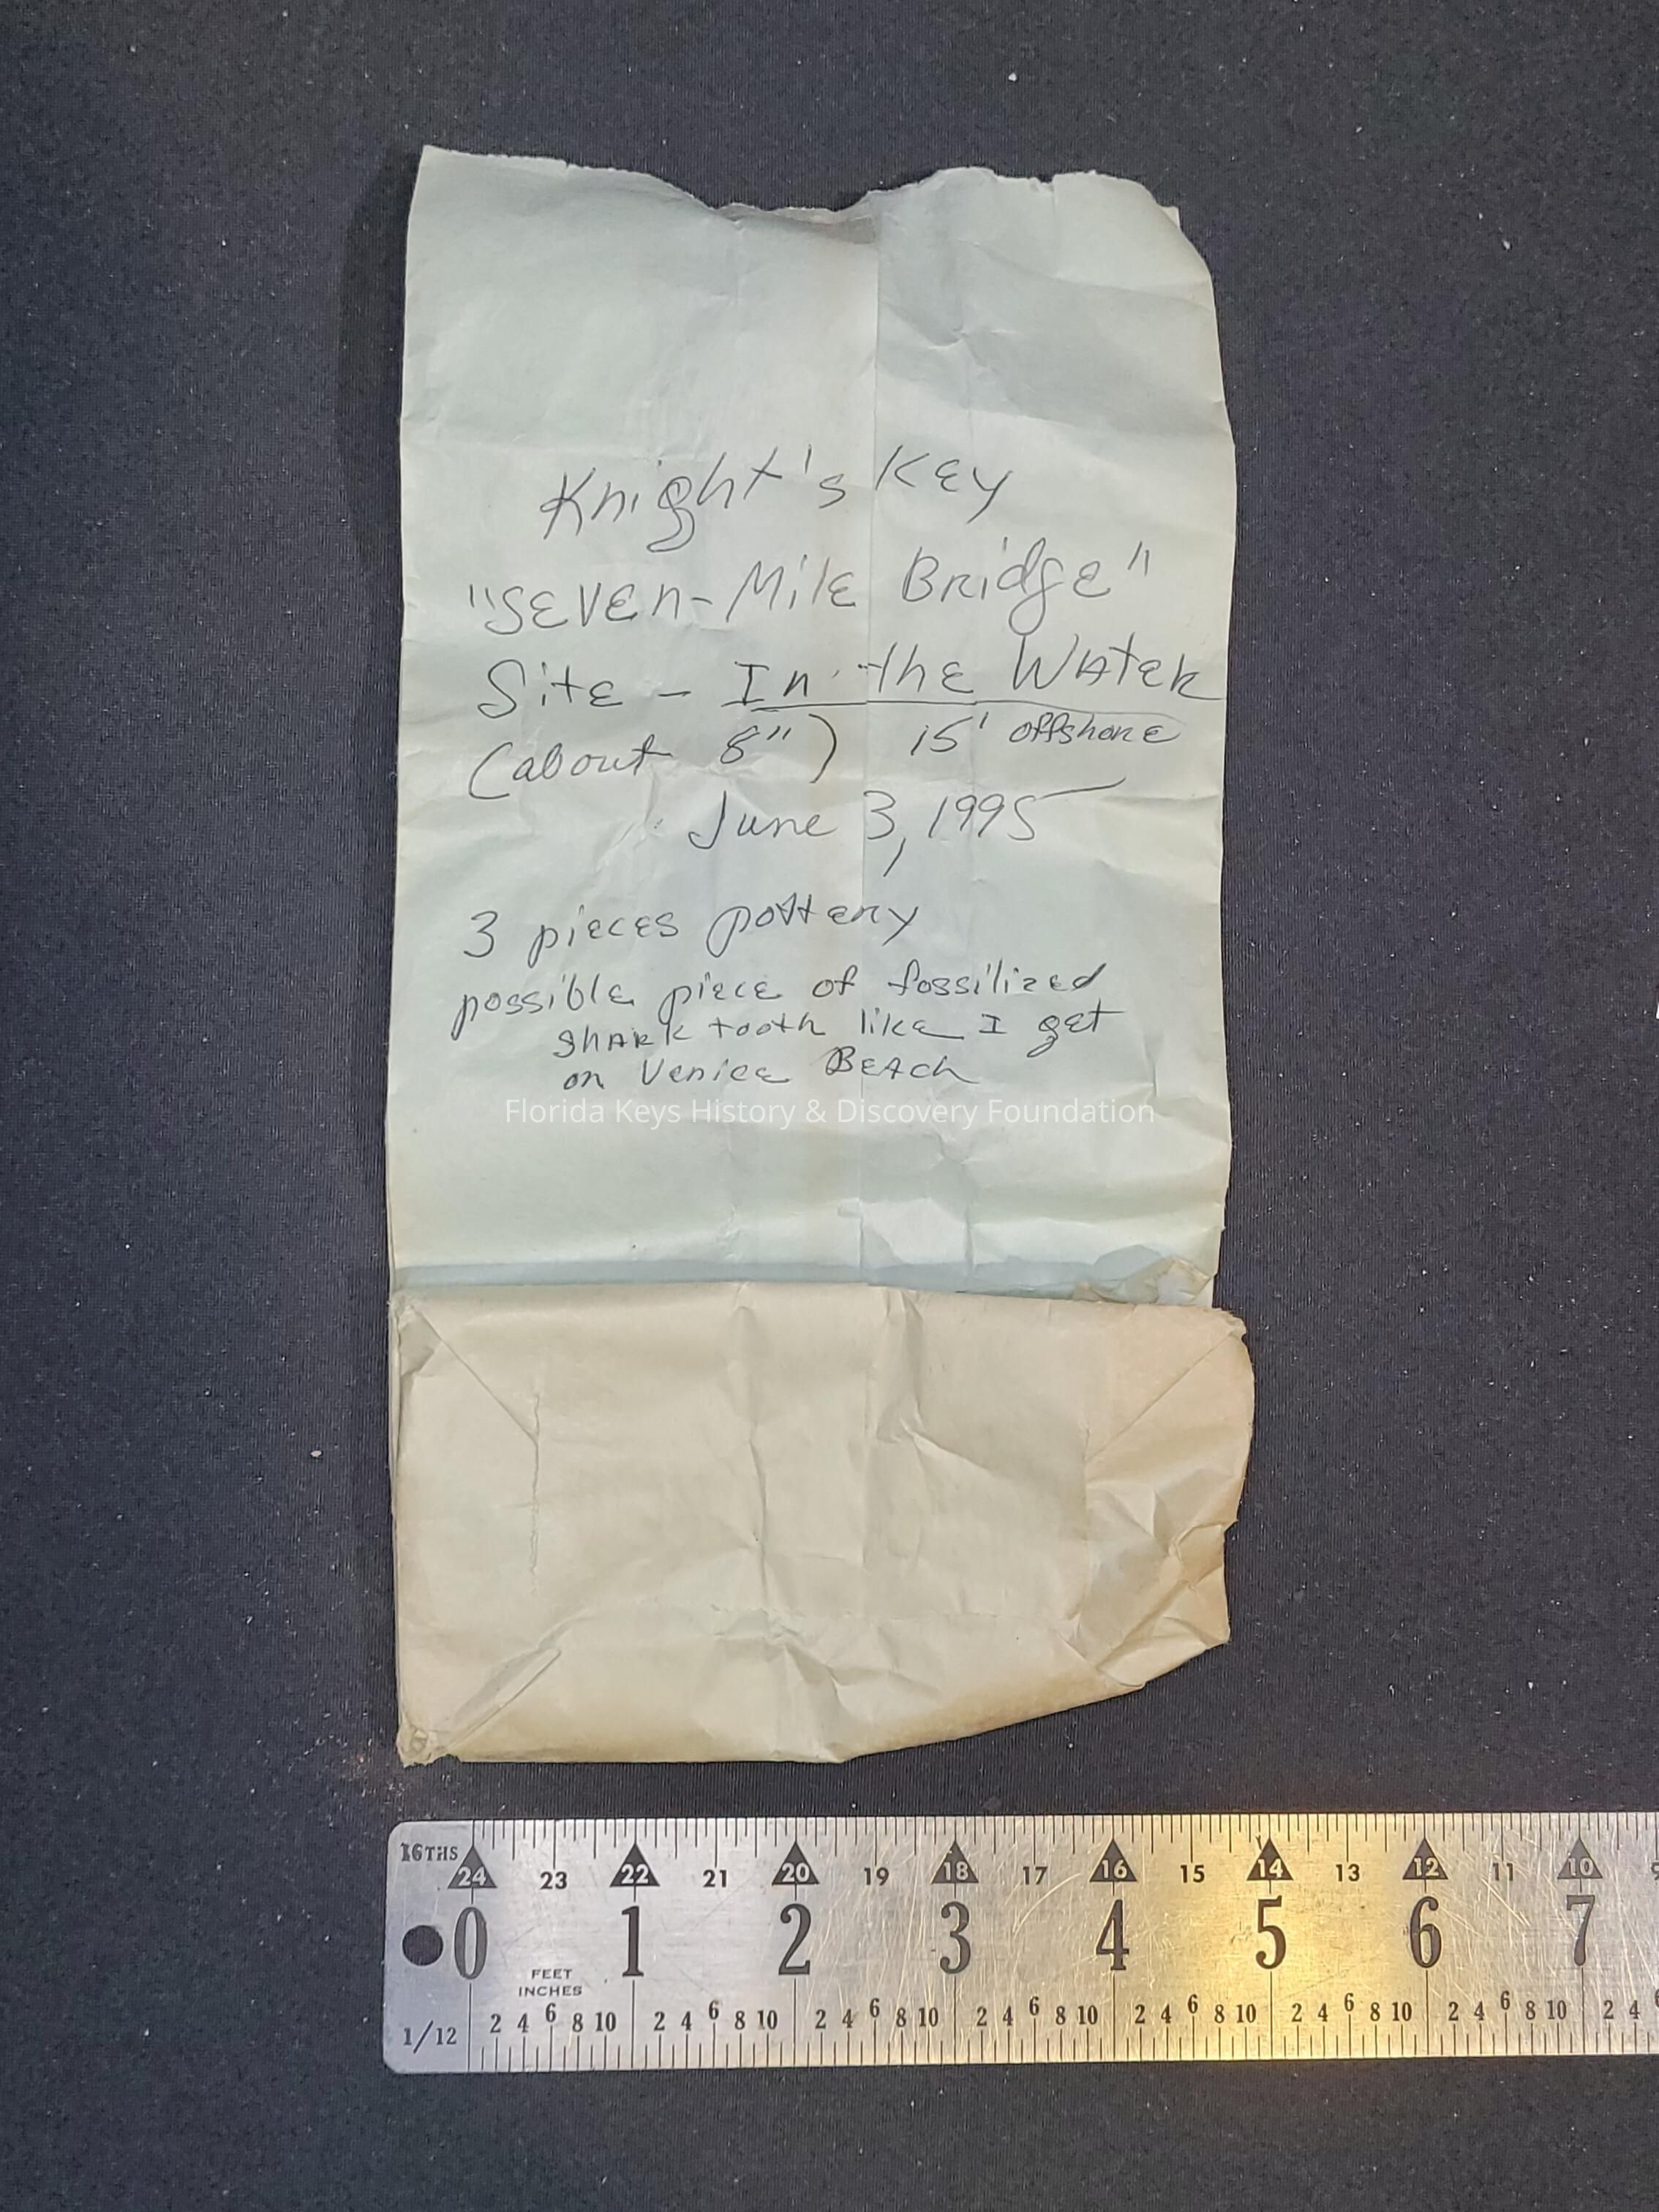 Knight's Key
"Seven-Mile Bridge"
Site - In the Water
(about 8") 15' offshore
June 3, 1995
3 pieces pottery
possible piece of fossilized
shark tooth like I get
on Venice Beach
Florida Keys History & Discovery Foundation
16THS 24 23 22 21 20 19 18 17 16 15 14 13 12 11 10 9
0 1 2 3 4 5 6 7
FEET
INCHES
1/12 2 4 6 8 10 2 4 6 8 10 2 4 6 8 10 2 4 6 8 10 2 4 6 8 10 2 4 6 8 10 2 4 6 8 10 2 4 6